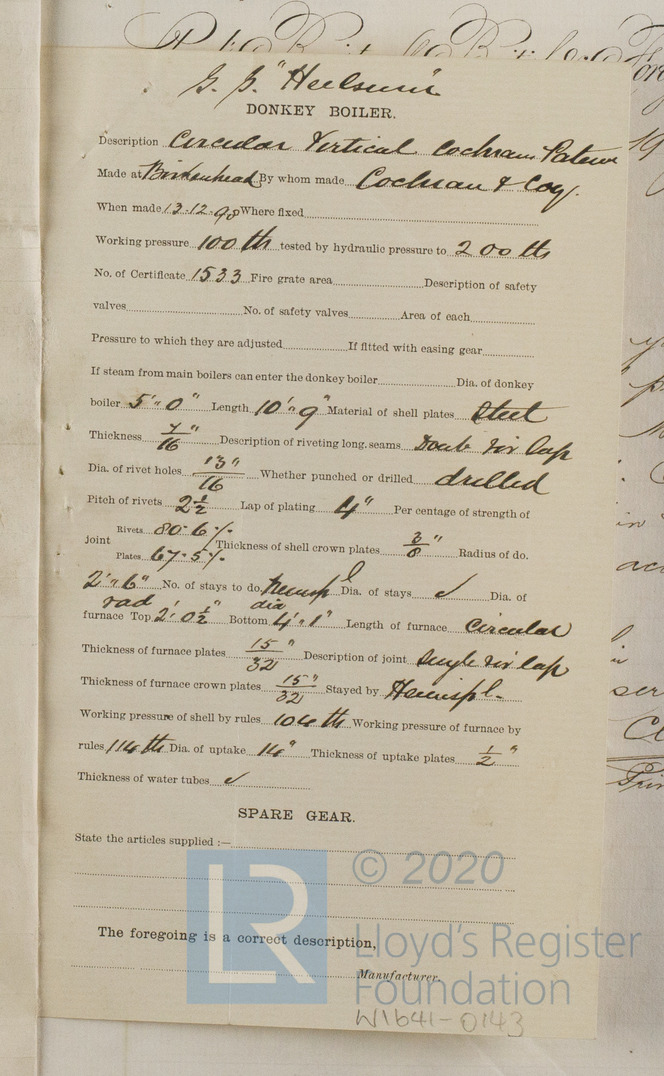 S.S. "Heilsum"
DONKEY BOILER.
Description Circular Vertical Cochran Patent
Made at Birkenhead By whom made Cochran & Coy.
When made 13.12.98 Where fixed
Working pressure 100 lb tested by hydraulic pressure to 200 lb
No. of Certificate 1533 Fire grate area Description of safety
valves No. of safety valves Area of each
Pressure to which they are adjusted If fitted with easing gear
If steam from main boilers can enter the donkey boiler Dia. of donkey
boiler 5'"0" Length 10'"9" Material of shell plates Steel
Thickness 7/16" Description of riveting long. seams Doub riv lap
Dia. of rivet holes 13/16" Whether punched or drilled drilled
Pitch of rivets 2 1/2 Lap of plating 4" Per centage of strength of
joint Rivets 80.6% Plates 67.5% Thickness of shell crown plates 3/8" Radius of do.
2'"6" No. of stays to do. Hemispl Dia. of stays ✓ Dia. of
rad dia
furnace Top 2'.0 1/2" Bottom 4'"1" Length of furnace Circular
Thickness of furnace plates 15/32" Description of joint Single riv lap
Thickness of furnace crown plates 15/32" Stayed by Hemispl.
Working pressure of shell by rules 104 lb Working pressure of furnace by
rules 114 lb Dia. of uptake 14" Thickness of uptake plates 1/2"
Thickness of water tubes ✓
SPARE GEAR.
State the articles supplied :—
The foregoing is a correct description,
Manufacturer.
LR © 2020
Lloyd's Register
Foundation
W1641-0143